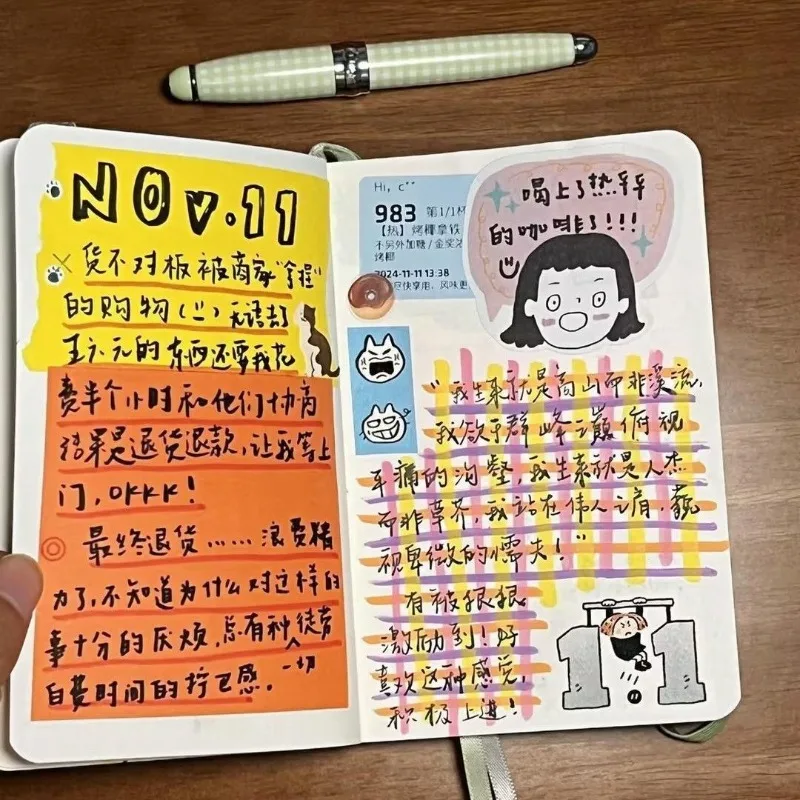 NOV.11
货不对板被商家"拿捏"
的购物(二)无语去了
五六元的东西还要我花
费半个小时和他们协商
结果是退货退款,让我等上
门,OKKK!
最终退货……浪费精
力了,不知道为什么对这样的
事十分的厌烦,总有种徒劳
白费时间的拧巴感。一切
Hi, c**
983 第1/1杯
【热】烤椰拿铁
不另外加糖/金奖浓
烤椰
2024-11-11 13:38
尽快享用,风味更
喝上了热乎乎
的咖啡了!!!
"我生来就是高山而非溪流,
我欲于群峰之巅俯视
平庸的沟壑,我生来就是人杰
而非草芥,我站在伟人之肩,藐
视卑微的懦夫!"
有被狠狠
激励到!好
喜欢这种感觉,
积极上进!
11